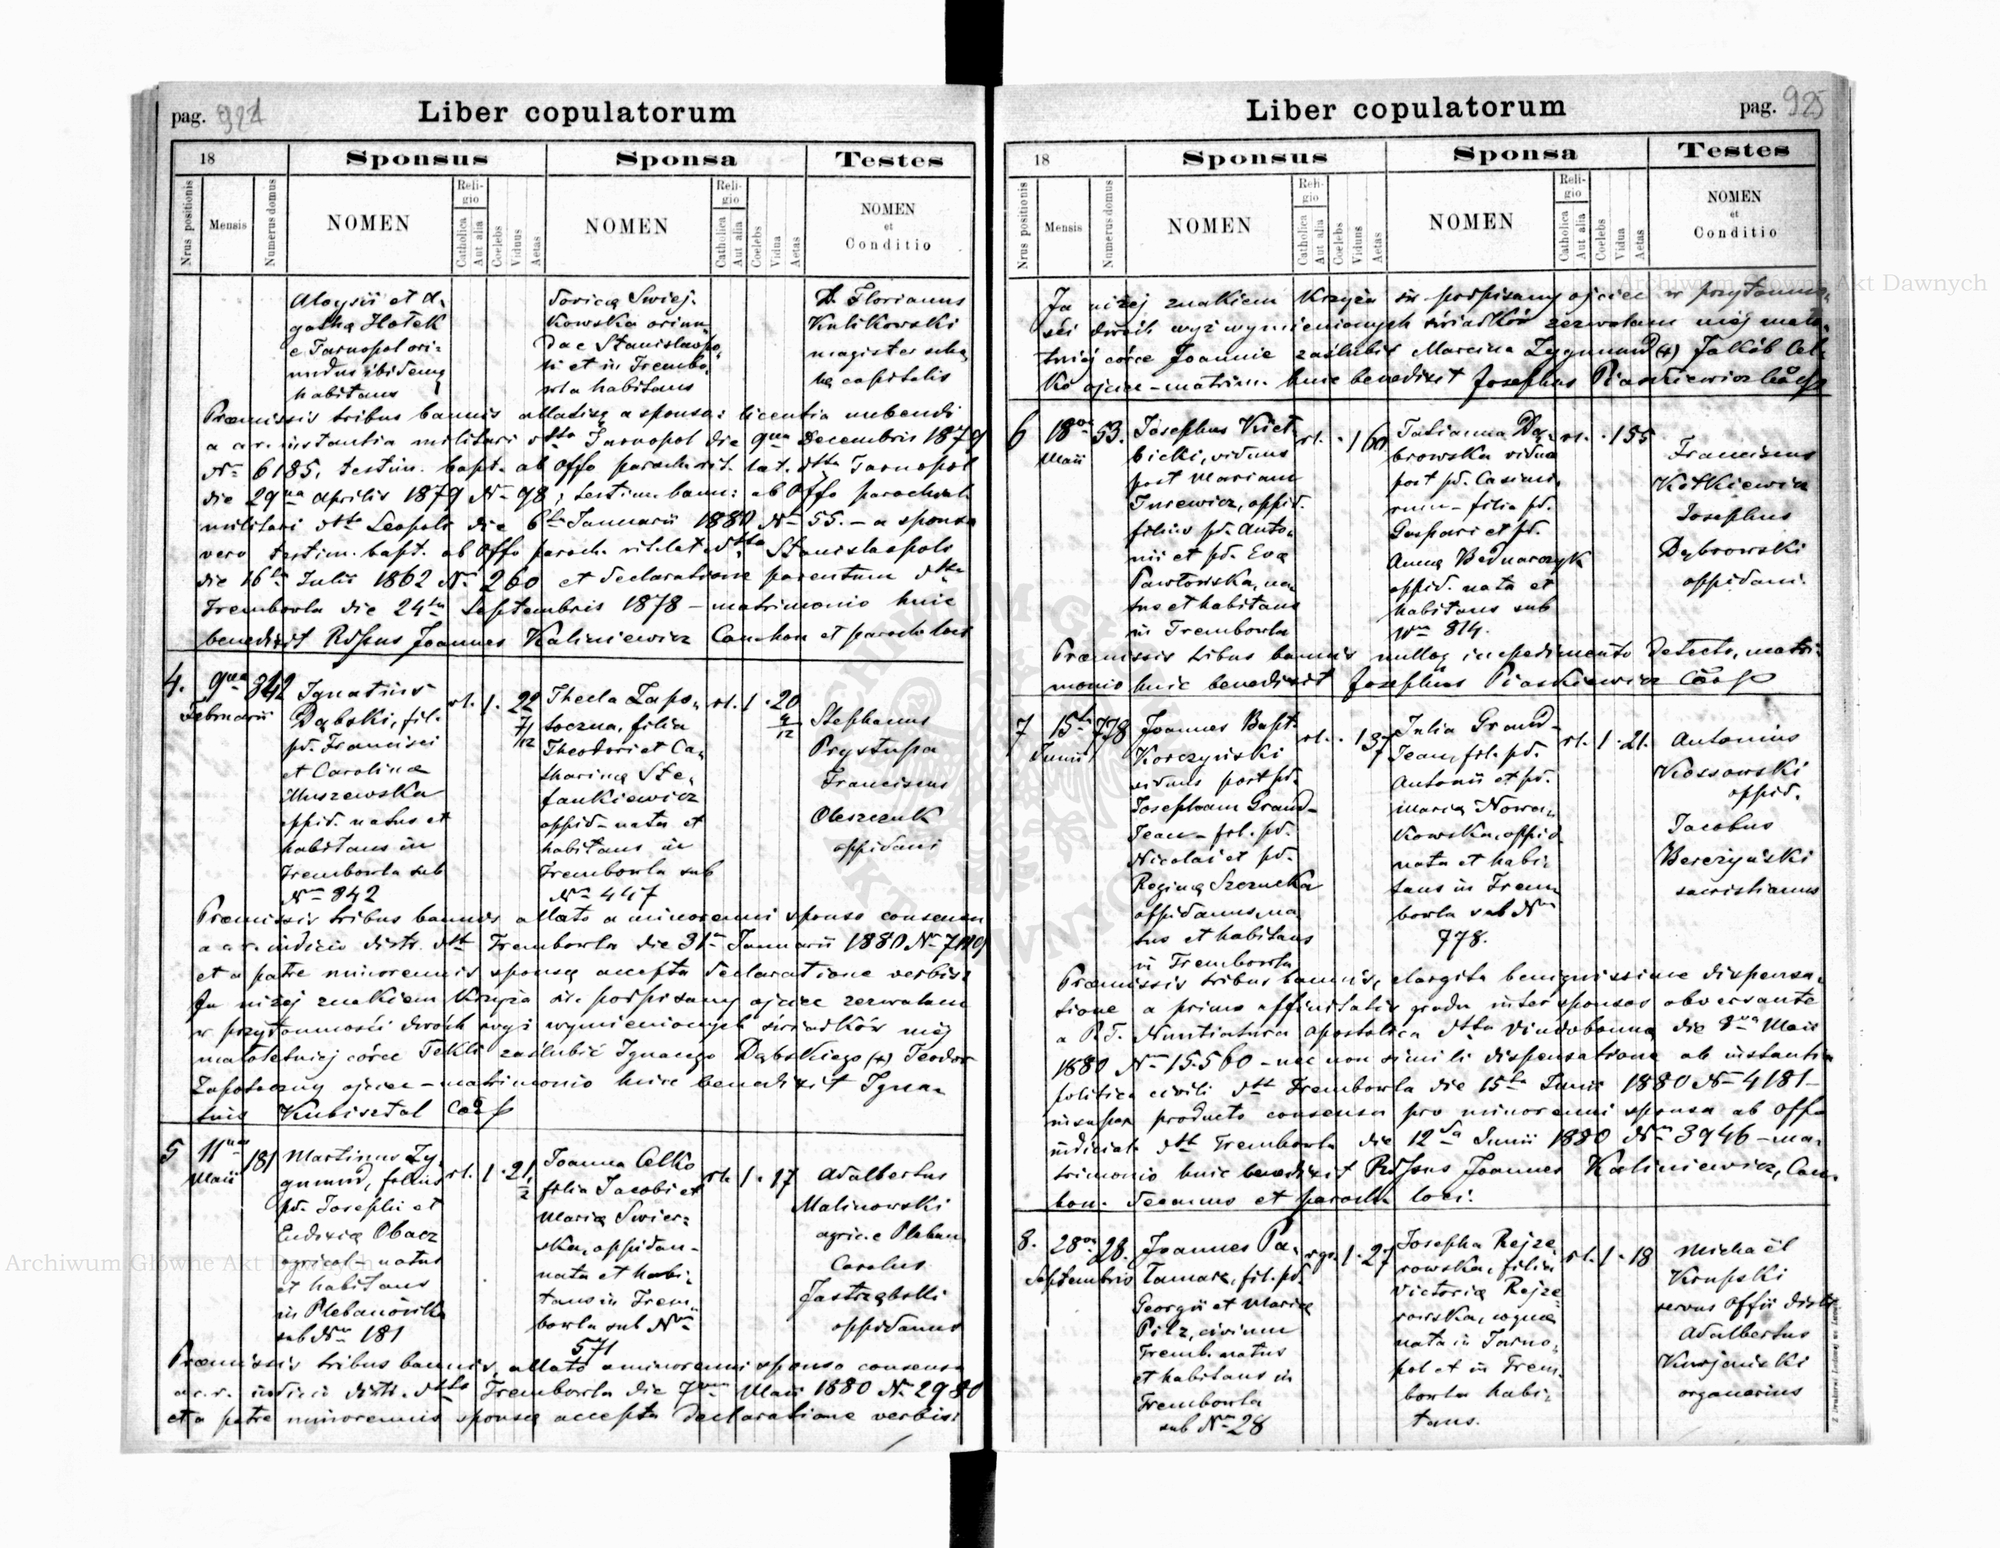 pag. 924
Liber copulatorum
18
Sponsus
Sponsa
Testes
Nrus positionis
Mensis
Numerus domus
NOMEN
Religio
Catholica
Aut alia
Coelebs
Viduus
Aetas
NOMEN
Religio
Catholica
Aut alia
Coelebs
Vidua
Aetas
NOMEN
et
Conditio
Aloysii et A-
gatha Hołek
e Tarnopol ori-
undus ibidemq
habitans
Kowska oriun
dae Stanislaopo-
li et in Trembo-
wla habitans
Florianus
Kulikowski
magister scho
capitalis
Praemissis tribus bannis allatisq a sponso: licentia nubendi
a c.r. instantia militari dtto Tarnopol die 9na Decembris 1879
No 6185, testim. bapt. ab Offo paroch. rit. lat. dtto Tarnopol
die 29na Aprilis 1879 No 98; testim. bann: ab Offo parochiali
militari dtto Leopoli die 6ta Januarii 1880 No 55. - a sponsa
vero testim. bapt. ab Offo paroch. rit. lat. dtto Stanislaopoli
die 16ta Julii 1862 No 260 et declaratione parentum dtto
Trembowla die 24ta Septembris 1878 - matrimonio huic
benedixit Rdssus Joannes Kaliniewicz Can. hon et paroch. loci
4.
9na
Februarii
342
Ignatius
Dąbski, fil.
pd. Francisci
et Carolina
Muszewska
oppid. natus et
habitans in
Trembowla sub
No 342
rl. 1. 22 7/12
Thecla Zapo-
toczna, filia
Theodori et Ca-
tharina Ste-
fankiewicz
oppid - nata et
habitans in
Trembowla sub
No 447
rl. 1 . 20 9/12
Stephanus
Prystupa
Franciscus
Oleszczuk
oppidani
Praemissis tribus bannis allato a minorenni sponso consensu
a c.r. iudicio distr. dtt Trembowla die 31a Januarii 1880
et a patre minorennis sponsa accepta declaratione verbis:
Ja niżej znakiem Krzyża św. podpisany ojciec zezwalam
w przytomności dwóch wyż wymienionych świadków mej
małoletniej córce Tekli zaślubić Ignacego Dąbskiego (+) Teodor
Zapotoczny ojciec - matrimonio huic benedixit Igna-
tius Kubisztal
5
11ma
Maii
181
Martinus Zy-
gmund, filius
pd. Josephi et
Eudoxia Obacz
agricol - natus
et habitans
in Plebanówka
sub No 181
rl. 1 . 21 1/2
Joanna Celko
filia Jacobi et
Maria Swier-
ska, oppidan -
nata et habi-
tans in Trem-
bowla sub No
571
rl. 1 . 17
Adalbertus
Malinowski
agric. e Pleban
Carolus
Jastrzębski
oppidanus
Praemissis tribus bannis, allato a minorenni sponso consensu
a c.r. iudicii distr. dtto Trembowla die 7ma Maii 1880 No 2980
et a patre minorennis sponsa accepta declaratione verbis:
pag. 925
Liber copulatorum
18
Sponsus
Sponsa
Testes
Nrus positionis
Mensis
Numerus domus
NOMEN
Religio
Catholica
Aut alia
Coelebs
Viduus
Aetas
NOMEN
Religio
Catholica
Aut alia
Coelebs
Vidua
Aetas
NOMEN
et
Conditio
Ja niżej znakiem Krzyża św. podpisany ojciec w przytomno-
ści dwóch wyż wymienionych świadków zezwalam mej mało-
letniej córce Joannie zaślubić Marcina Zygmund (+) Jakób Cel-
ko ojciec - matrim. huic benedixit Josephus Piaskiewicz
6
18va
Maii
53.
Josephus
bicki, viduus
post Mariam
oppid.
filius pd. Anto-
nii et pd. Eva
Pawłowska, na-
tus et habitans
in Trembowla
rl. . 1 60
Tatianna Dą-
browska vidua
post pd. Casimi-
rum - filia pd.
Gaspari et pd.
Anna Bednarczyk
oppid. nata et
habitans sub
No 814.
rl. . 1 55
Franciscus
Kotkiewicz
Josephus
Dąbrowski
oppidani.
Praemissis tribus bannis nulloq impedimento detecto, matri-
monio huic benedixit Josephus Piaskiewicz
7
15ta
Junii
778
Joannes Bapt.
Korczyński
viduus post pd.
Josepham Grand-
Jean - fil. pd.
Nicolai et pd.
Regina Szczucka
oppidanus, na-
tus et habitans
in Trembowla
rl. . 1 37
Julia Grand-
Jean, fil. pd.
Antonii et pd.
Maria Nowa-
kowska, oppid
nata et habi-
tans in Trem
bowla sub No
778.
rl. 1 . 21.
Antonius
Kossowski
oppid.
Jacobus
Bereżyński
sacristianus
Praemissis tribus bannis, elargita benignissime dispensa-
tione a primo affinitatis gradu inter sponsos obversante
a P.T. Nuntiatura apostolica dtto Vindobonna die 8va Maii
1880 No 15.560 - nec non simili dispensatione ab instantia
politica civili dtt Trembowla die 15ta Junii 1880 No 4181 -
insuper producto consensu pro minorenni sponsa ab Offo
iudiciali dtt Trembowla die 12 Junii 1880 No 3946 - ma-
trimonio huic benedixit Rdssus Joannes Kaliniewicz, Can.
hon. decanus et paroch. loci.
8.
28va
Septembris
28.
Joannes Pa-
tamarz, fil. pd.
Georgii et Maria
Pilz, civium
Tremb. natus
et habitans in
Trembowla
sub No 28
1 . 27
Josepha Rejze-
rowska, filia
Victoria Rejze-
rowska,
nata in Tarno-
pol et in Trem-
bowla habi-
tans.
rl. 1 . 18
Michaël
Krupski
servus Offii distr.
Adalbertus
organarius
Archiwum Główne Akt Dawnych
Archiwum Główne Akt Dawnych